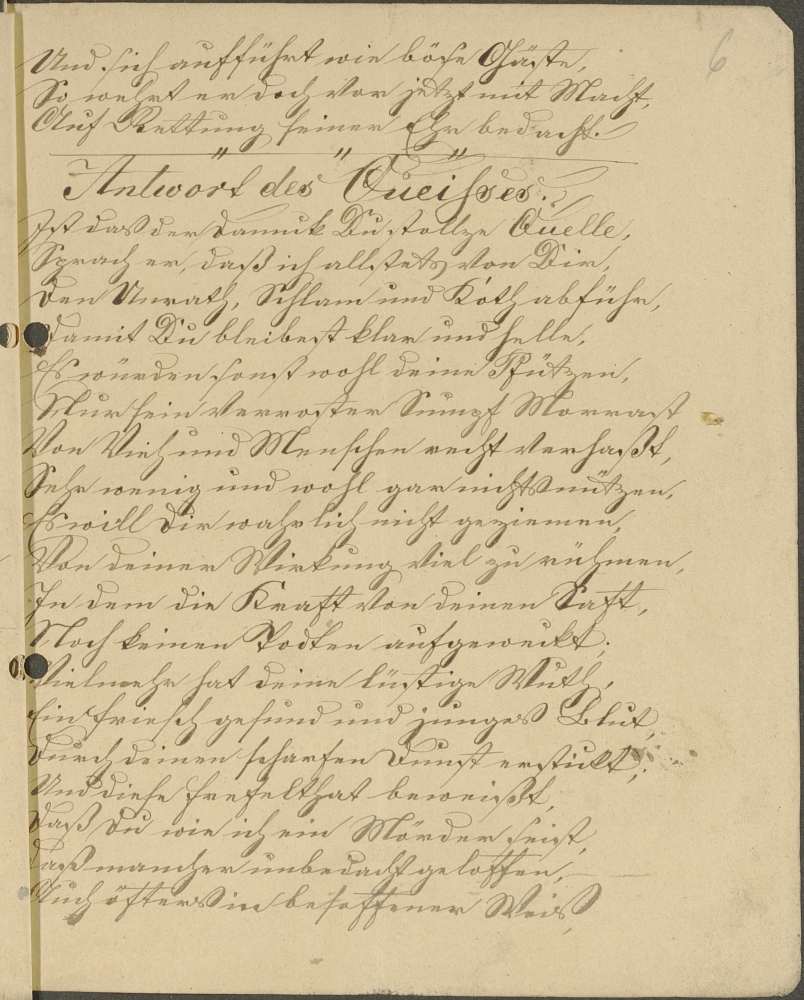 6
Und sich aufführt wie böse Gäste,
So wehrt er doch vor jetzt mit Macht,
Auf Rettung seiner Ehr bedacht.
Antwort des Queißes.
Ist das der Dannck Du stollze Quelle,
Sprach er, daß ich allstets von Dir,
Den Unrath, Schlam und Koth abführ,
Damit Du bleibest klar und helle,
Es würden sonst wohl deine Pfützen,
Nur sein Verroster Sumpf Morrast
Von Vieh und Menschen recht verhaßt,
Sehr wenig und wohl gar nichts nützen,
Es will Dir wahrlich nicht geziemen,
Von deiner Wirkung Viel zu rühmen,
In dem die Kraft von deinen Saft,
Noch keinen Todten aufgeweckt;
Vielmehr hat deine lüstige Wuth,
Ein friesch gesund und junges Blut,
Durch deinen scharfen Dunst erstickt;
Und diese Frefelthat beweißt,
Daß Du wie ich ein Mörder seist,
Daß mancher unbedacht geloffen,
Auch öfters in besoffener Weis,